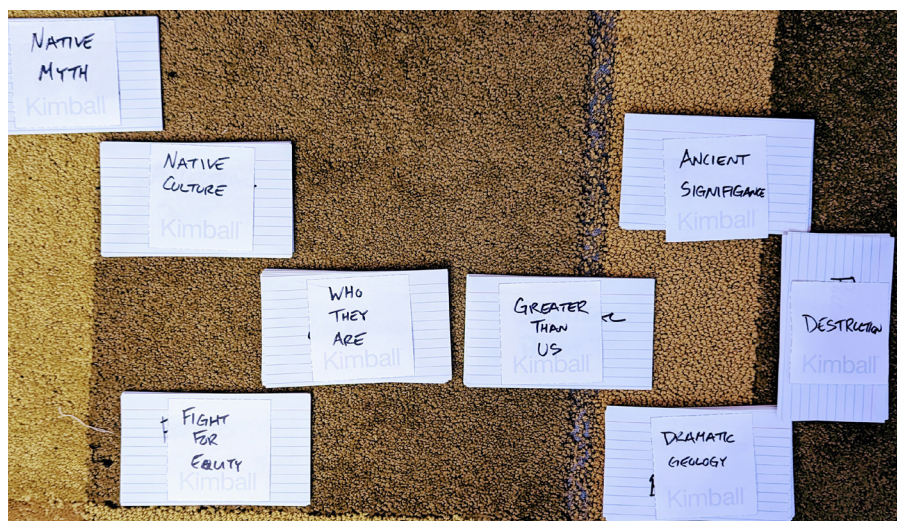 NATIVE
MYTH
Kimball
NATIVE
CULTURE
Kimball
ANCIENT
SIGNIFIGANCE
Kimball
WHO
THEY
ARE
Kimball
GREATER
THAN
US
Kimball
DESTRUCTION
Kimball
FIGHT
FOR
EQUITY
Kimball
DRAMATIC
GEOLOGY
Kimball